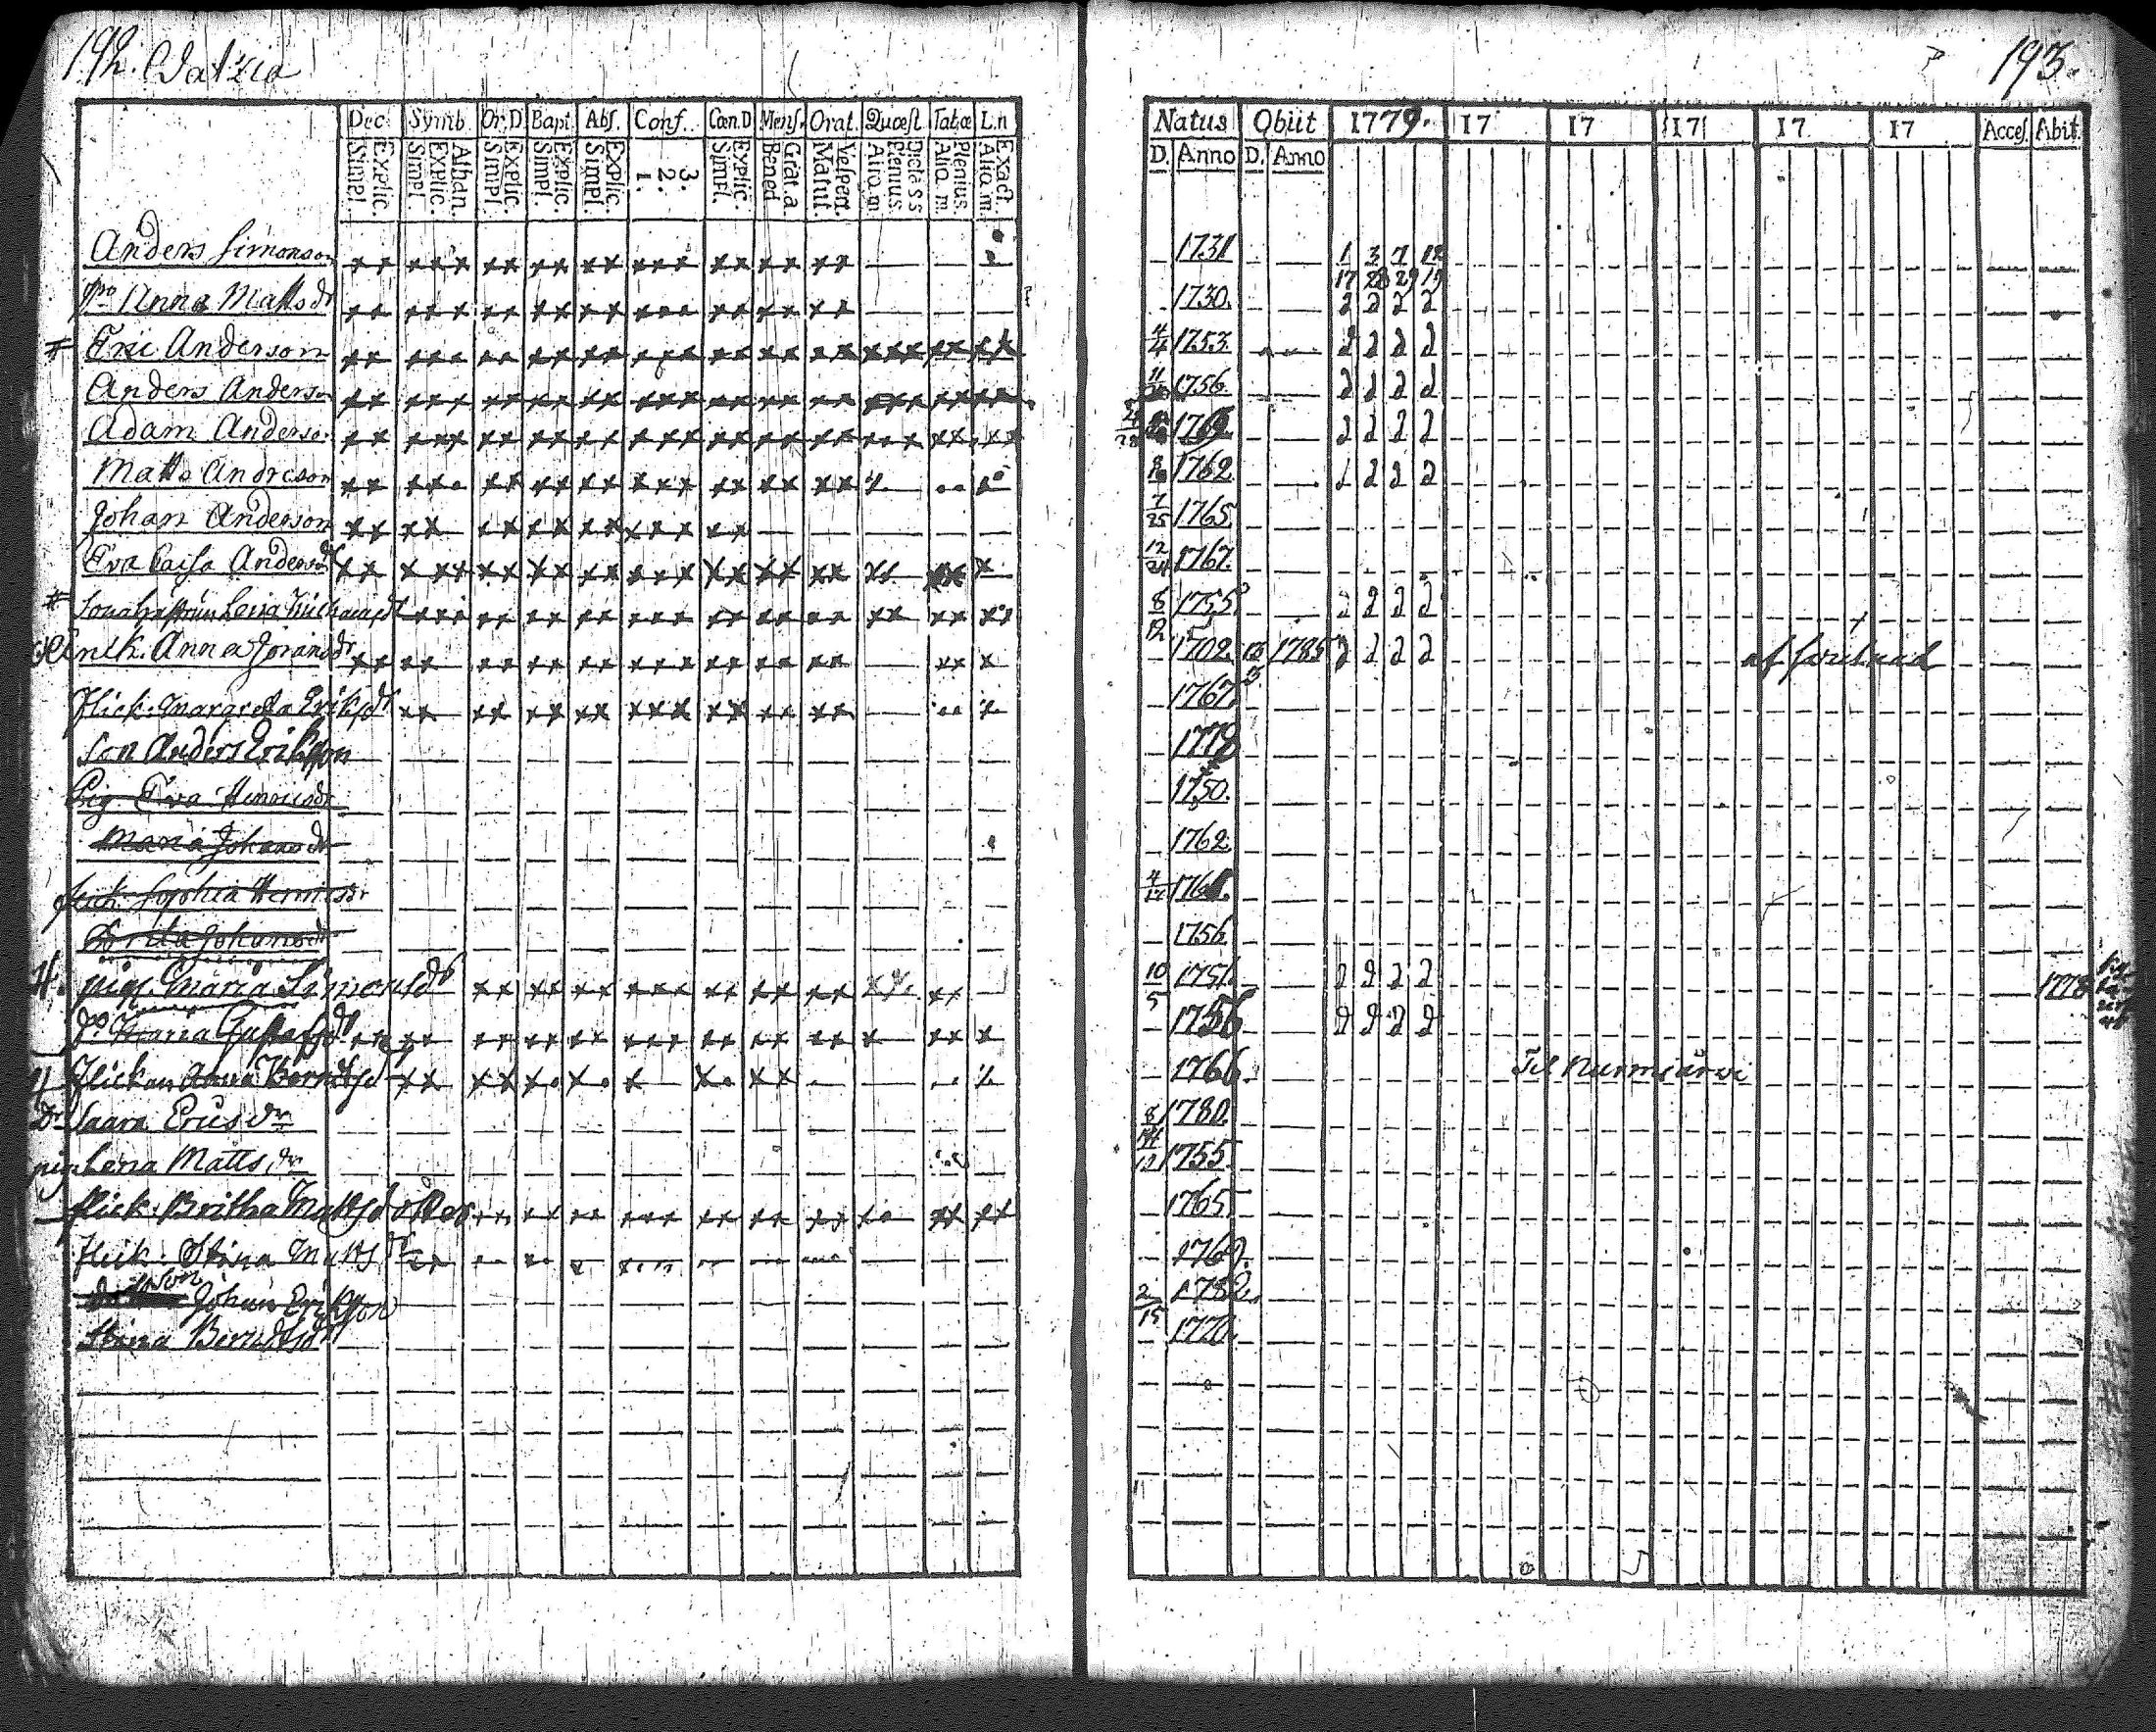 192.
Dec. Symb. Or.D. Bapt. Abs. Conf. Cœn.D. Mens. Orat. Quæst. Tabœ L.n
Explic. Simpl. Athan. Explic. Simpl. Explic. Simpl. Explic. Simpl. Explic. Simpl. 3. 2. 1. Explic. Simpl. Grat. a. Bened. Vespert. Matut. Dicta S S Plenius. Aliq. m. Plenius. Aliq. m. Exact. Aliq. m.
Anders Simonson
Anna Matts dr
Eric Anderson
Anders Anderson
Adam Anderson
Matts Andreson
Johan Anderson
Eva Caisa Andersdr
Enk. Anna Jöransdr
flick. Margreta Eriksdr
Son Anders Eriksson
Pig. Eva Henricsdr
Maria Johansdr
flick. Sophia Henricsdr
Brita Johansdr
pig. Maria Simonsdr
Do Maria Gustafsdr
Flickan Anna Berndtsdr
Dr Saara Erics dr
pig Lena Matts dr
flick. Britha Mattsdotter
flick. Stina Mattsdr
son Johan Eriksson
Stina Berndtsdr
193.
Natus Obiit 1779. 17 17 17 17 17 Acces. Abit.
D. Anno D. Anno
1731 1 3 7 12
17 28 29 19
1730. 2 2 2 2
4/4 1753 2 2 2 2
11 1756 2 2 2 2
176 2 2 2 2
8 1762 1 2 2 2
7/25 1765
12/24 1767.
8/12 1755 2 2 2 2
1702 1785 2 2 2 2
1767
1778
1750.
1762
4/17 176
1756
10/5 1751 2 2 2 2 1778
1756 2 2 2 2
1766. Til Nurmijärvi
8 1780.
1755
1765
176
2/15 1782.
1770